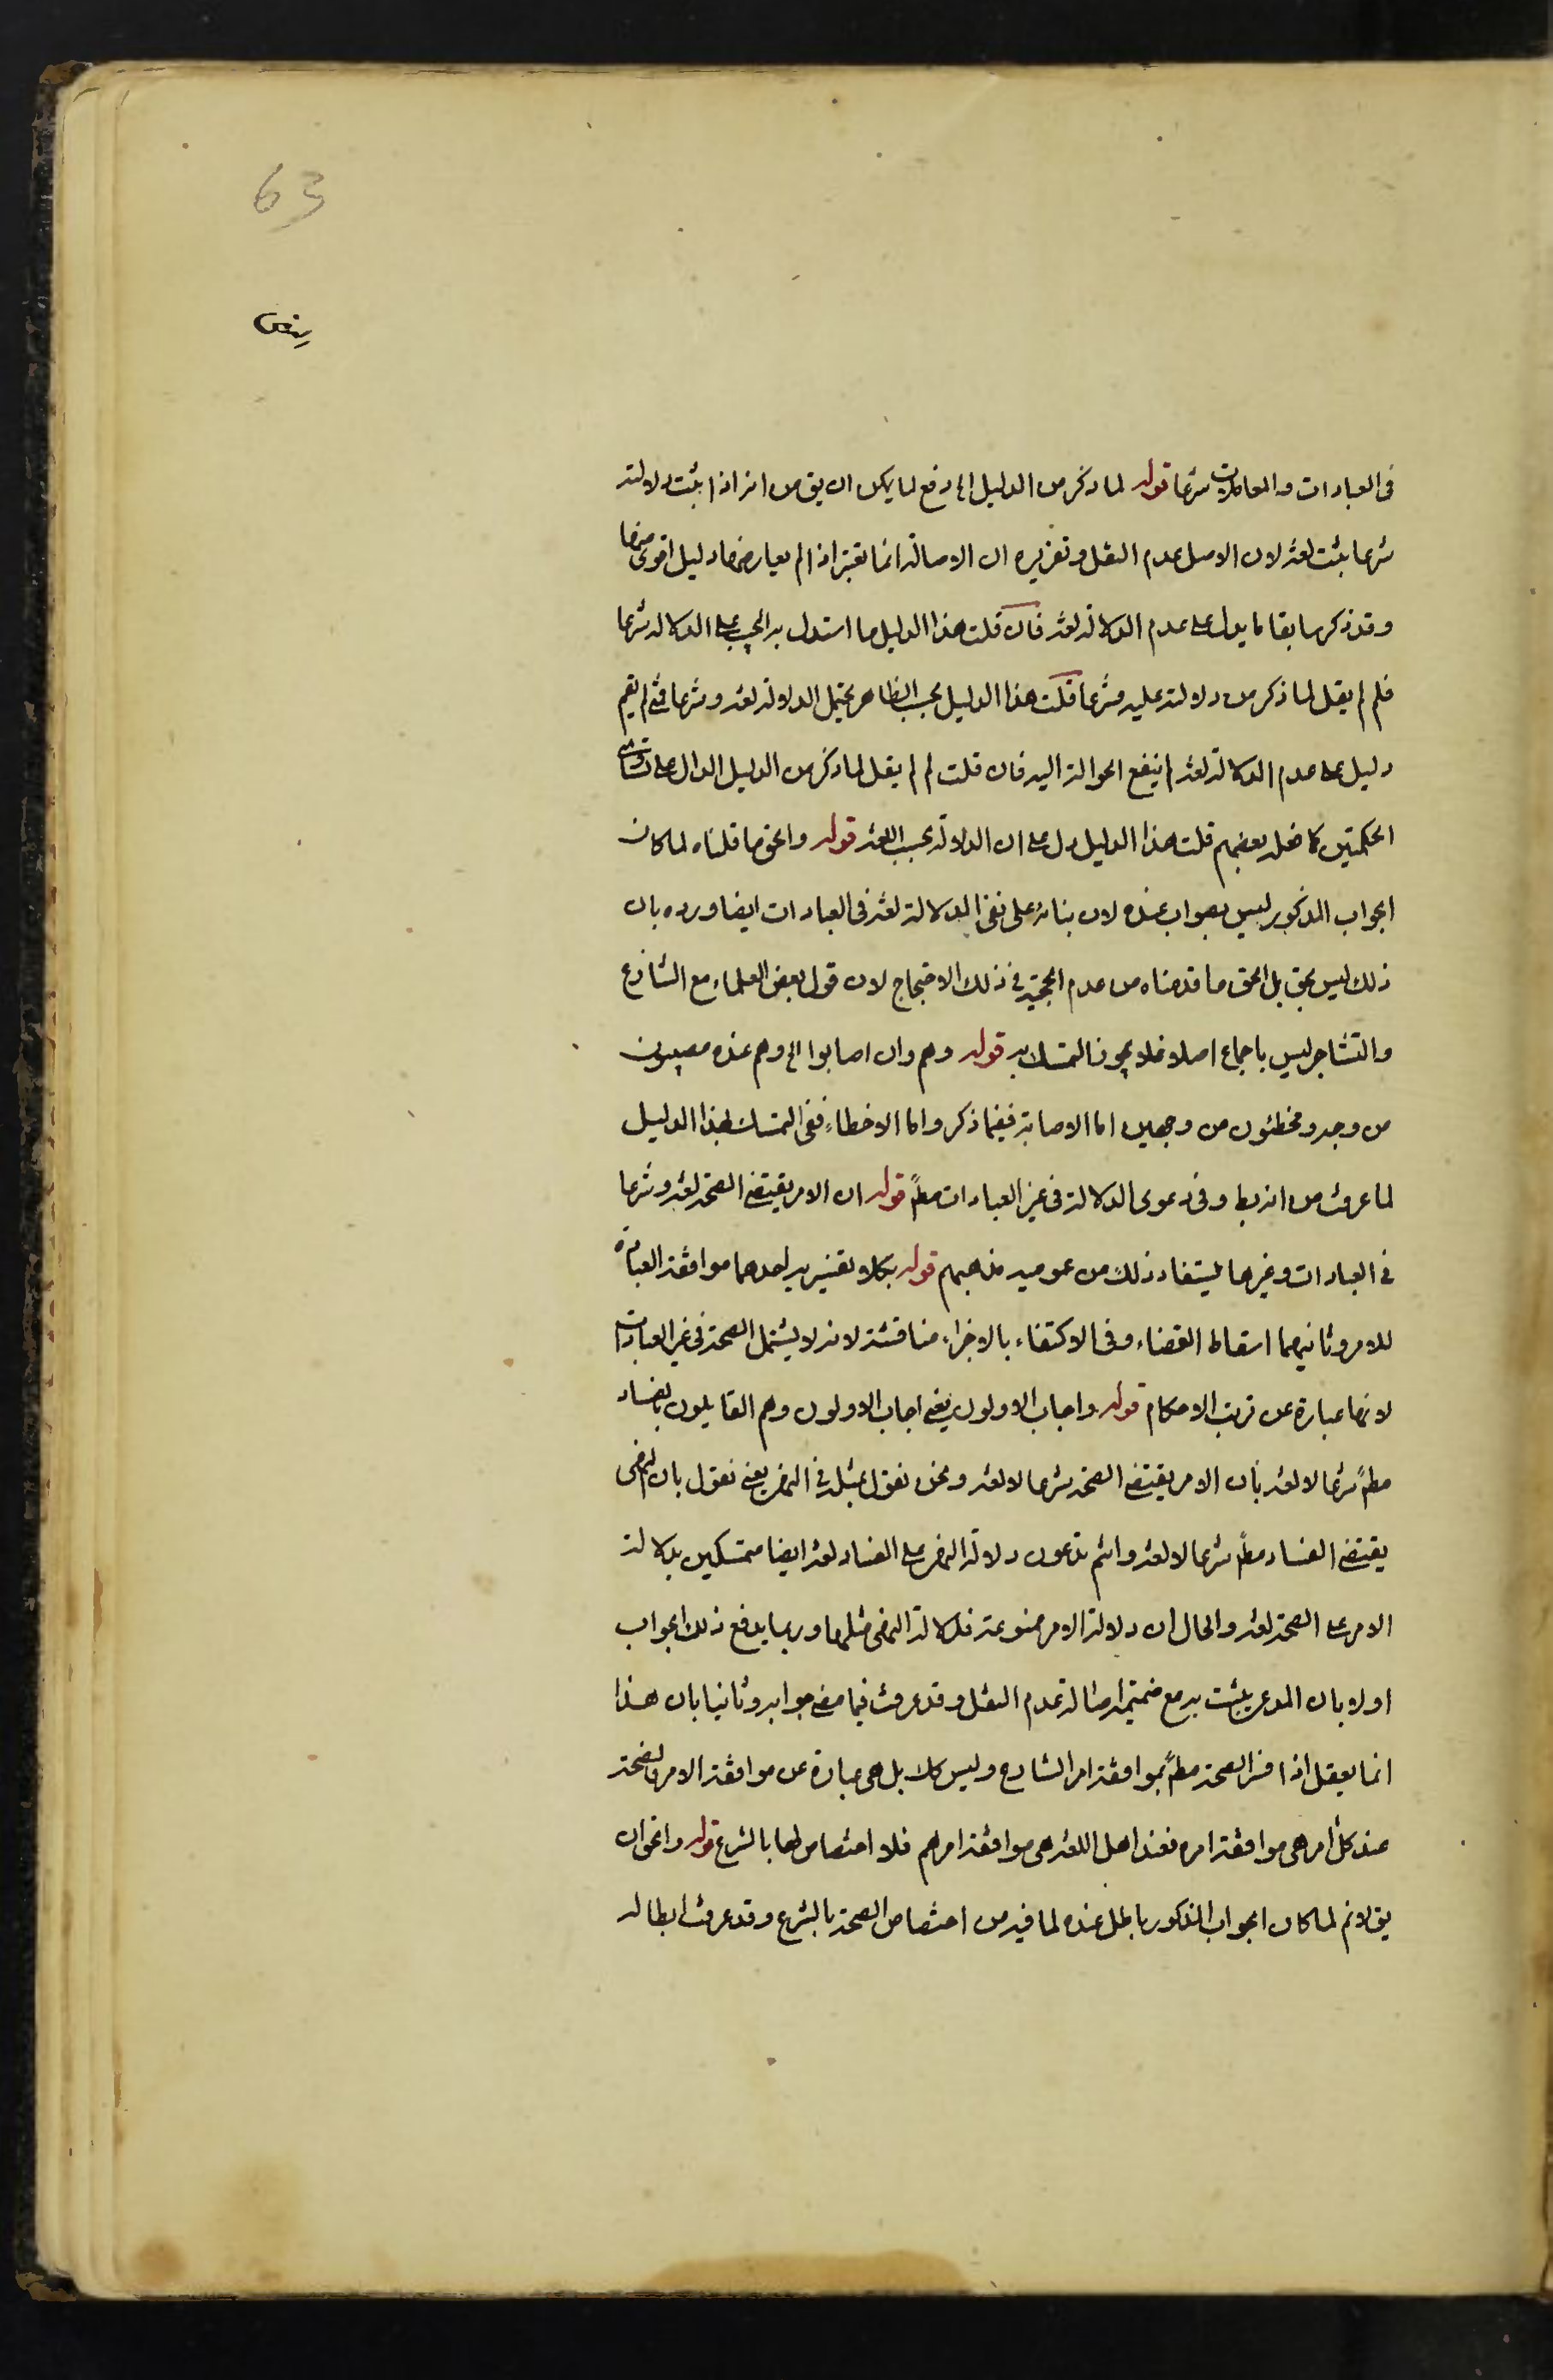 63
في العبادات والمعاملات شرعا قوله لما ذكر من الدليل اه دفع لما يمكن ان يق من انه اذا ثبت دلالته
شرعا ثبت لغة لان الاصل عدم النقل وتقريره ان الاصالة انما تعتبر اذا لم يعارضها دليل اقوى منها
وقد ذكر سابقا ما يدل على عدم الدلالة لغة فان قلت هذا الدليل ما استدل به المجيب على الدلالة شرعا
فلم لم يقل لما ذكر من دلالته عليه شرعا قلت هذا الدليل بحسب الظاهر يحتمل الدلالة لغة وشرعا فمتى لم يقم
دليل على عدم الدلالة لغة لم ينفع الحوالة اليه فان قلت لم لم يقل لما ذكر من الدليل الدال على
الحكمتين كما فعله بعضهم قلت هذا الدليل دل على ان الدلالة بحسب اللغة قوله والحق ما قلناه لما كان
الجواب المذكور ليس بجواب عنده لان بنائه على نفي الدلالة لغة في العبادات ايضا ورده بان
ذلك ليس بحق بل الحق ما قدمناه من عدم الحجية في ذلك الاحتجاج لان قول بعض العلماء مع التنازع
والتشاجر ليس باجماع اصلا فلا يجوز التمسك به قوله وهم وان اصابوا اه وهم عنده مصيبون
من وجه ومخطئون من وجهين اما الاصابة ففيما ذكر واما الاخطاء ففي التمسك بهذا الدليل
لما عرفت من انه بط وفي دعوى الدلالة في غير العبادات مطً قوله ان الامر يقتضي الصحة لغة وشرعا
في العبادات وغيرها يستفاد ذلك من عموميه مذهبهم قوله بكلا تفسيريه احدهما موافقة العبادة
للامر وثانيهما اسقاط القضاء وفي الاكتفاء بالاجزاء مناقشة لانه لا يشتمل الصحة في غير العبادات
لانها عبارة عن ترتب الاحكام قوله واجاب الاولون يعني اجاب الاولون وهم القايلون بالفساد
مطً شرعا لا لغة بان الامر يقتضي الصحة شرعا لا لغة ونحن نقول بمثله في النهي يعني نقول بان النهي
يقتضي الفساد مطً شرعا لا لغة وانتم تدعون دلالة النهي على الفساد لغة ايضا متمسكين بدلالة
الامر على الصحة لغة والحال ان دلالة الامر ممنوعة فدلالة النهي مثلها وربما يدفع ذلك الجواب
اولا بان المدعى يثبت به مع ضميمة اصالة عدم النقل وقد عرفت فيما مضى جوابه وثانيا بان هذا
انما يعقل اذا فسر الصحة مطً بموافقة امر الشارع وليس كك بل هي عبارة عن موافقة الامر فالصحة
عند كل امر هي موافقة امره فعند اهل اللغة هي موافقة امرهم فلا اختصاص لها بالشرع قوله والحق ان
يق لانم لما كان الجواب المذكور باطل عنده لما فيه من اختصاص الصحة بالشرع وقد عرفت ابطاله